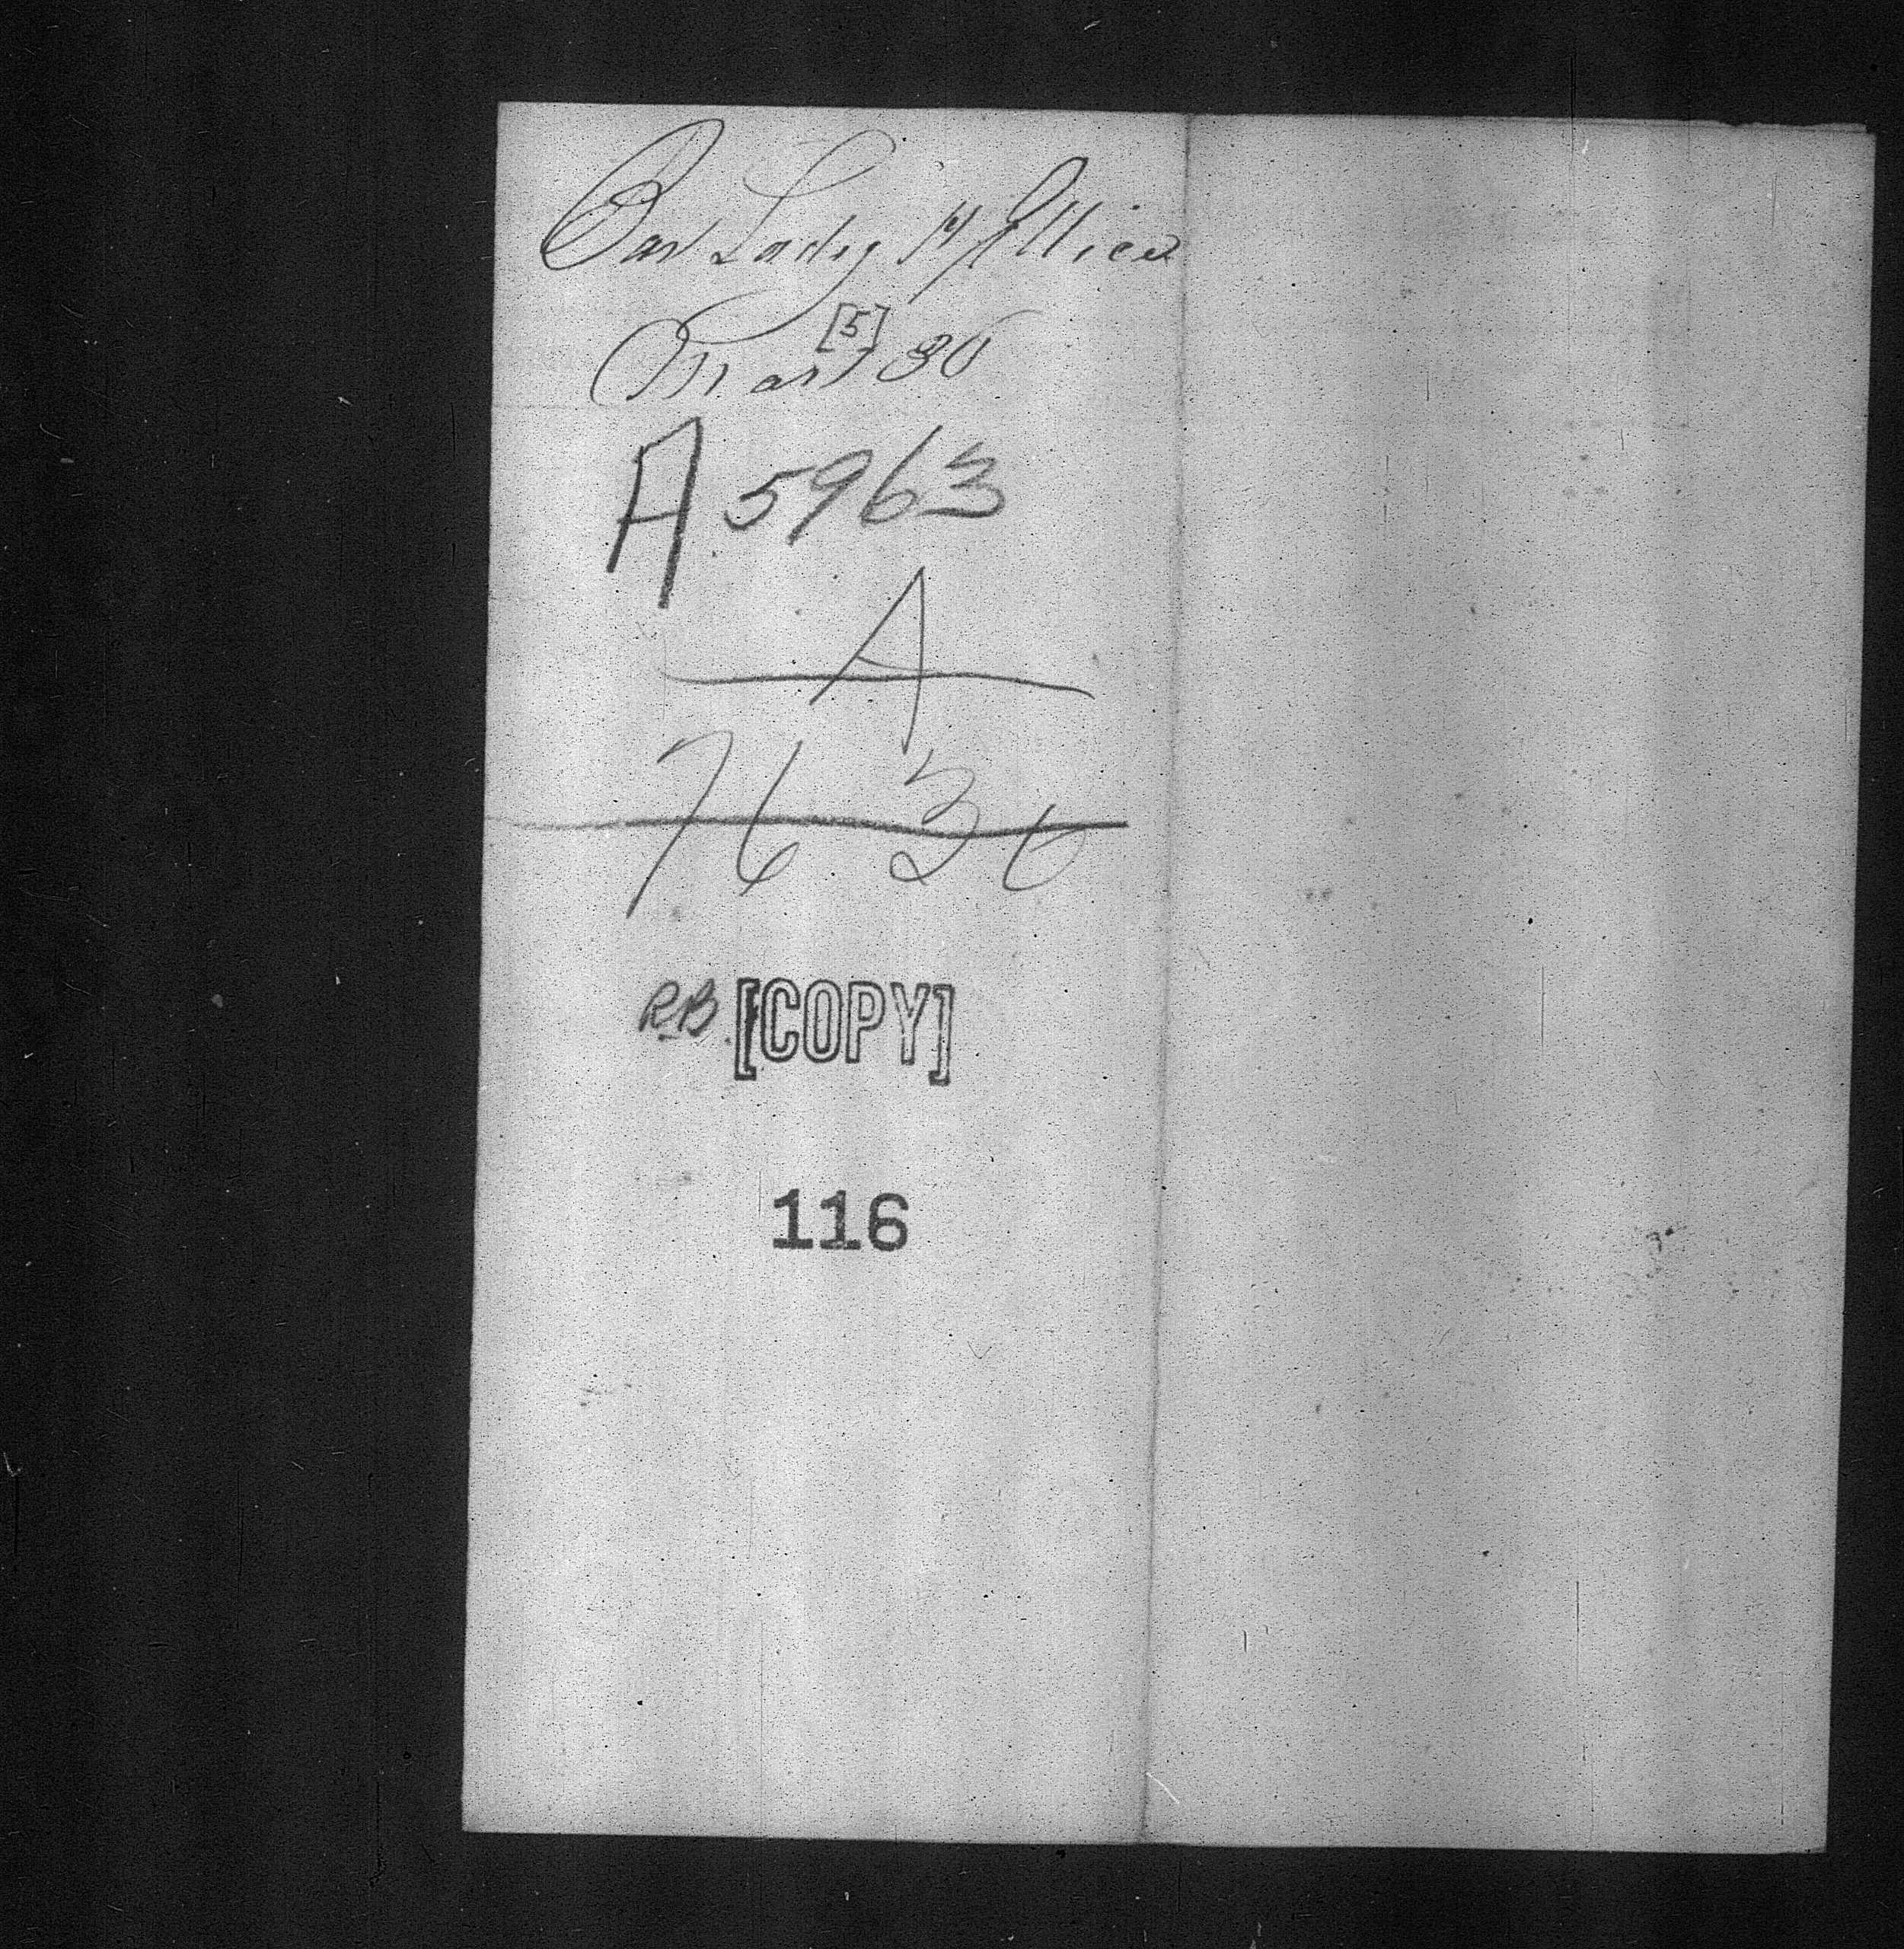 Our Lady of Allice
Mar 30
[5]
A 5963
A
7636
RB [COPY]
116